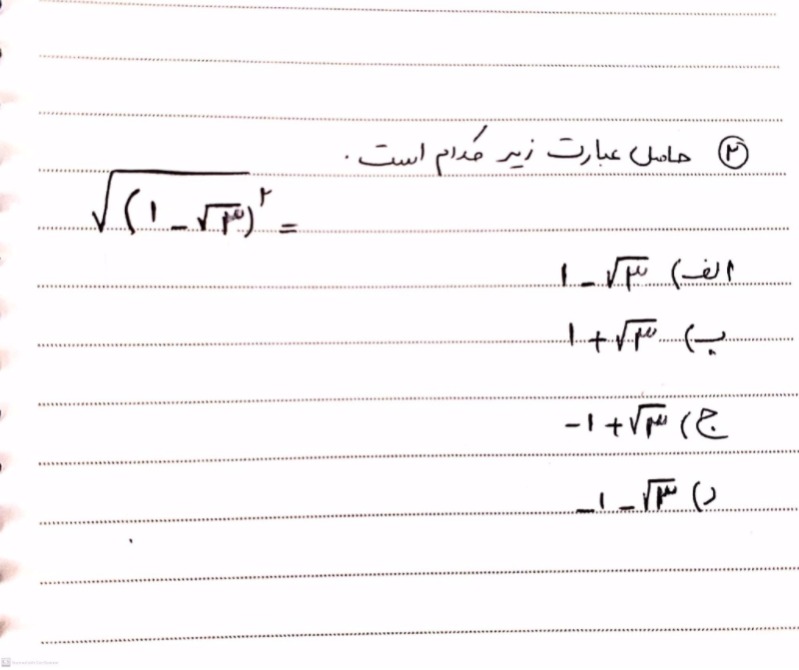 ۲ حاصل عبارت زیر کدام است.
√(۱ - √۳)^۲ =
الف) ۱ - √۳
ب) ۱ + √۳
ج) -۱ + √۳
د) -۱ - √۳